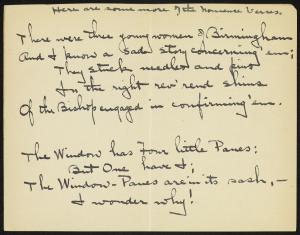 Here are some more of the Nonsense Verses.
There were three young women of Birmingham
And I know a sad story concerning 'em;
They stuck needles and pins
In the right rev'rend shins
Of the Bishop engaged in confirming 'em.
The Window has Four little Panes:
But One have I;
The Window-Panes are in its sash, –
I wonder why!